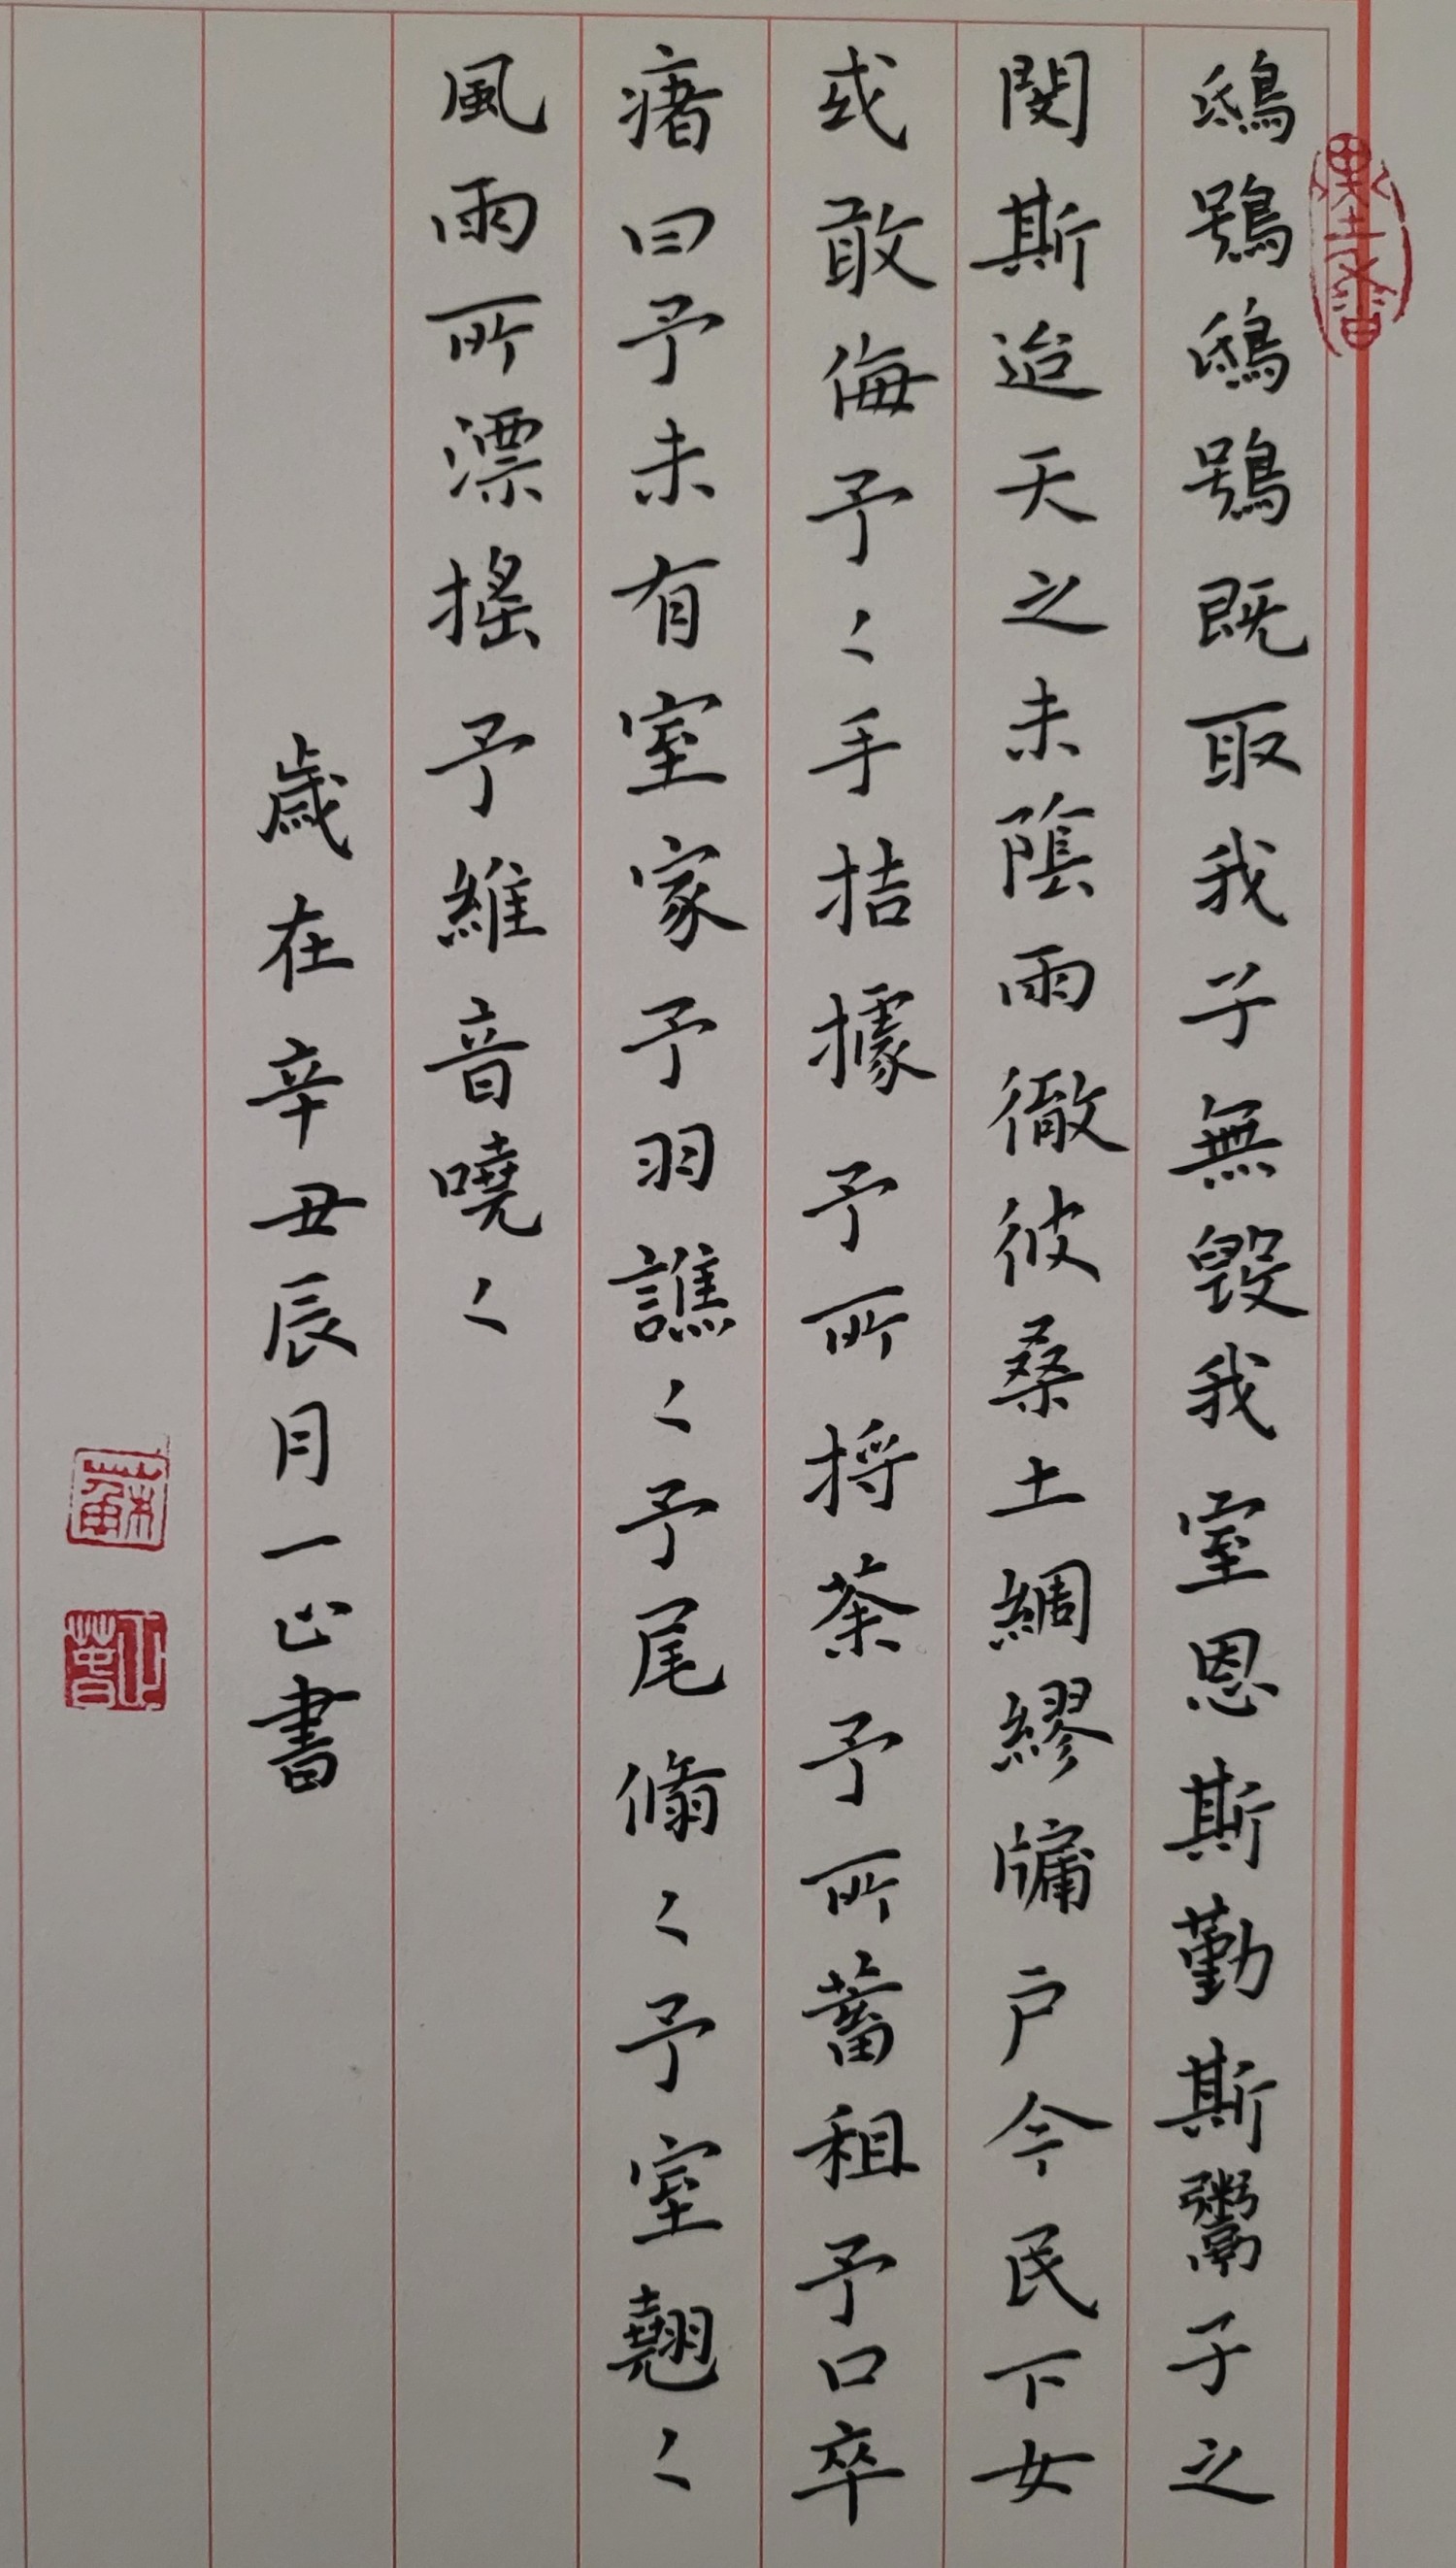 鴟鴞鴟鴞既取我子無毀我室恩斯勤斯鬻子之
閔斯迨天之未蔭雨徹彼桑土綢繆牖户今民下女
或敢侮予〻手拮據予所捋荼予所蓄租予口卒
瘏曰予未有室家予羽譙〻予尾翛〻予室翹〻
風雨所漂搖予維音嘵〻
歲在辛丑辰月一心書
蘇